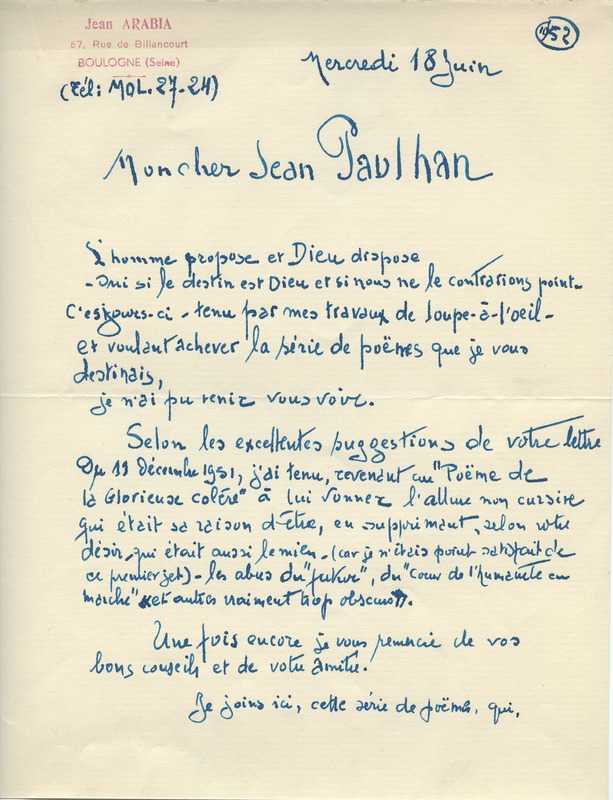 Jean ARABIA
67, Rue de Billancourt
BOULOGNE (Seine)
(tél: MOL. 27-24)
1952
Mercredi 18 Juin
Mon cher Jean Paulhan
L'homme propose et Dieu dispose
- Oui si le destin est Dieu et si nous ne le contrarions point -
C'esjours-ci - tenu par mes travaux de loupe-à-l'oeil -
et voulant achever la série de poëmes que je vous
destinais,
je n'ai pu venir vous voir.
Selon les excellentes suggestions de votre lettre
Du 19 Décembre 1951, j'ai tenu, revenant au "Poëme de
la Glorieuse colère" à lui donner l'allure non cursive
qui était sa raison d'être, en supprimant, selon votre
désir, qui était aussi le mien - (car je n'étais point satisfait de
ce premier jet) - les abus du "futur", du "Coeur de l'humanité en
marche" et autres vraiment trop obscurs.
Une fois encore je vous remercie de vos
bons conseils et de votre amitié.
Je joins ici, cette série de poëmes, qui,